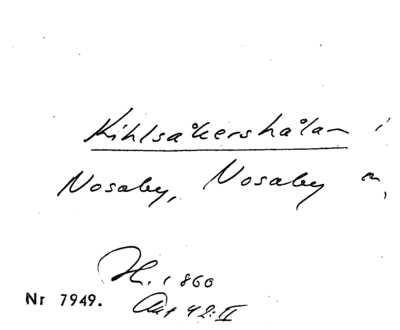 Kihlsåkershålan i
Nosaby, Nosaby
H. 1860
Nr 7949.
Akt 42:II